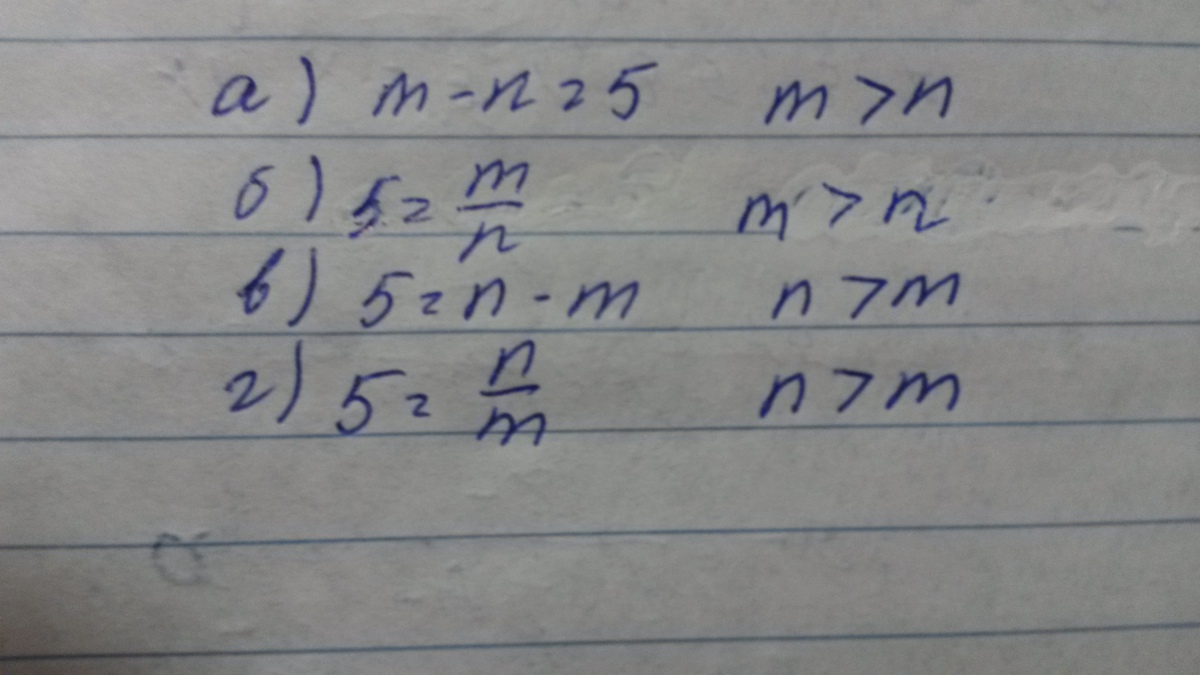 а) m - n = 5 m > n
б) 5 = m/n m > n
в) 5 = n - m n > m
г) 5 = n/m n > m